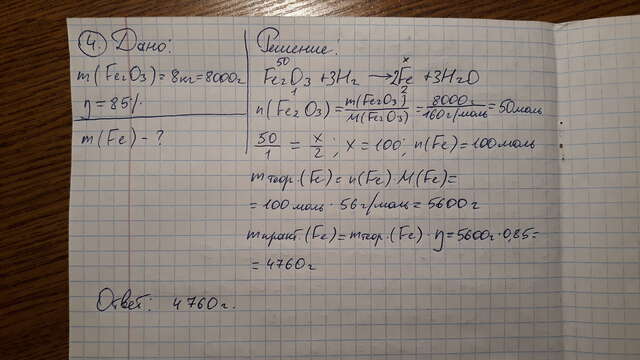 4. Дано:
m(Fe₂O₃)=8т=8000г
η=85%
m(Fe)-?
Решение:
50 x
Fe₂O₃ + 3H₂ → 2Fe + 3H₂O
1 2
n(Fe₂O₃) = m(Fe₂O₃)/M(Fe₂O₃) = 8000г/160г/моль = 50моль
50/1 = x/2, x=100; n(Fe)=100моль
mтеор.(Fe)=n(Fe)·M(Fe)=
=100моль·56г/моль=5600г
mпракт.(Fe)=mтеор.(Fe)·η=5600г·0,85=
=4760г
Ответ: 4760г.